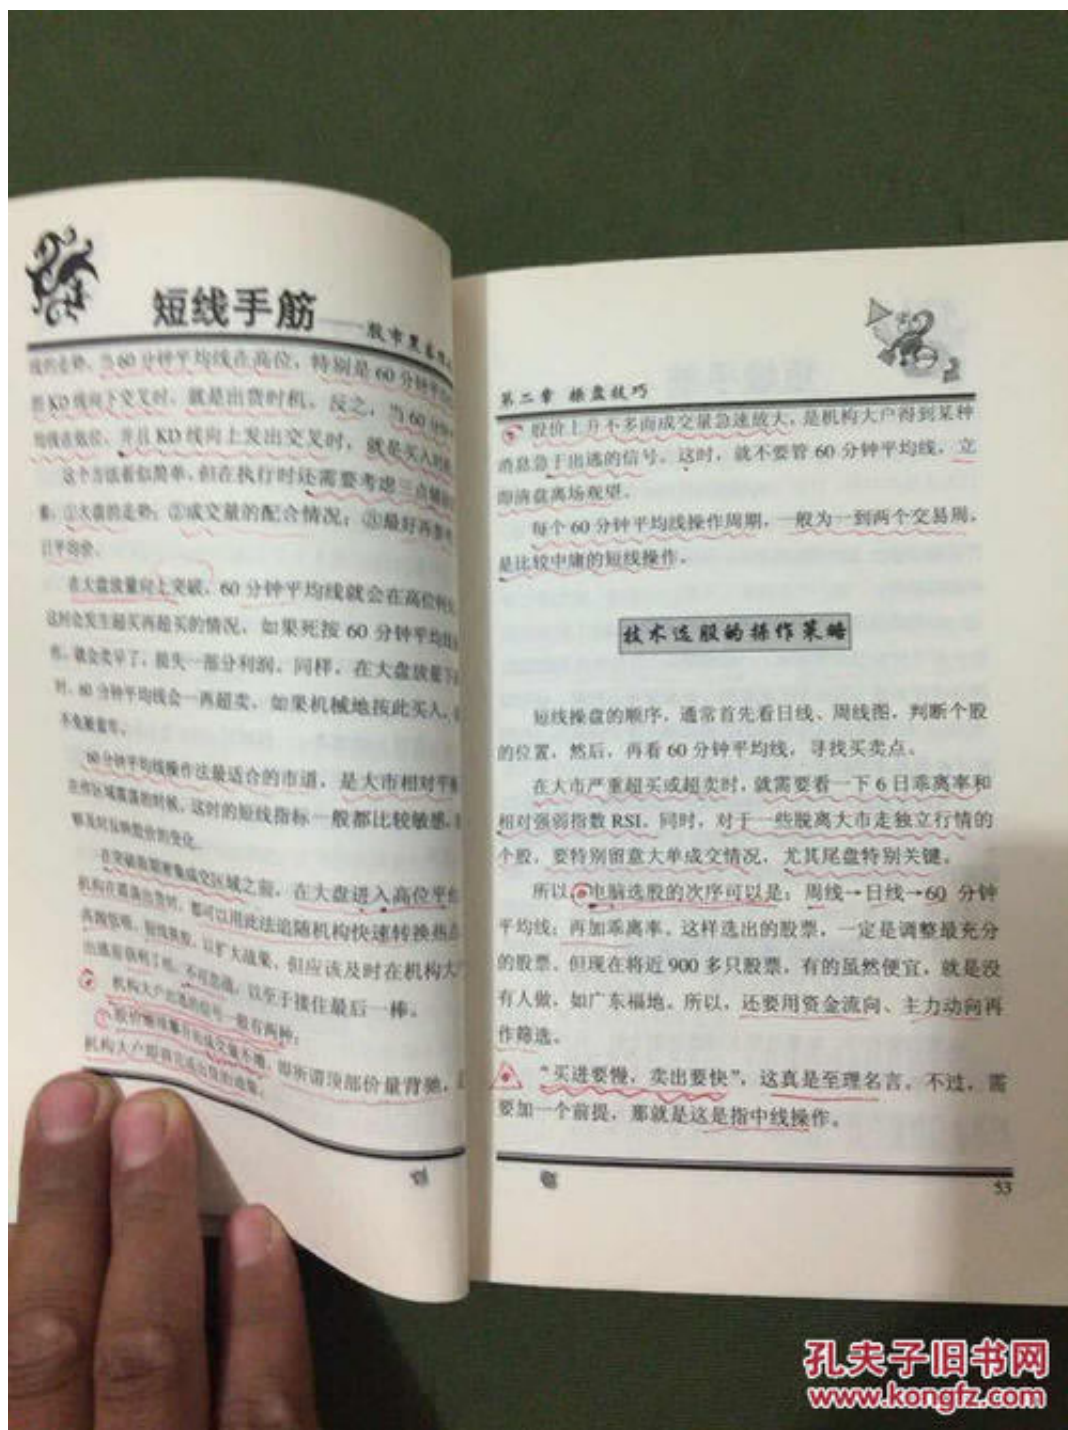 短线手筋
——股市黑客
线的走势。当60分钟平均线在高位，特别是60分钟平均
KD线向下交叉时，就是出货时机。反之，当60分钟
均线在低位，并且KD线向上发出交叉时，就是买入时机
这个方法看似简单，但在执行时还需要考虑三点辅助
①大盘的走势；②成交量的配合情况；③最好再参考
日平均价。
在大盘放量向上突破，60分钟平均线就会在高位钝化
这时会发生超买再超买的情况，如果死按60分钟平均线
就会卖早了，损失一部分利润。同样，在大盘放量下
时，60分钟平均线会一再超卖，如果机械地按此买入，
不免被套牢。
60分钟平均线操作法最适合的市道，是大市相对平衡
在作区域震荡的时候，这时的短线指标一般都比较敏感，
够及时反映股价的变化。
在突破前期密集成交区域之前，在大盘进入高位平台
机构在震荡出货时，都可以用此法追随机构快速转换热点
高抛低吸，短线获胜，以扩大战果，但应该及时在机构大户
出逃前获利了结，不可恋战，以至于接住最后一棒。
机构大户出逃的信号一般有两种：
①股价继续攀升而成交量不增，即所谓顶部价量背驰，
机构大户即将完成出货的迹象。
第二章 操盘技巧
股价上升不多而成交量急速放大，是机构大户得到某种
消息急于出逃的信号。这时，就不要管60分钟平均线，立
即清盘离场观望。
每个60分钟平均线操作周期，一般为一到两个交易周，
是比较中庸的短线操作。
技术选股的操作策略
短线操盘的顺序，通常首先看日线、周线图，判断个股
的位置，然后，再看60分钟平均线，寻找买卖点。
在大市严重超买或超卖时，就需要看一下6日乖离率和
相对强弱指数RSI。同时，对于一些脱离大市走独立行情的
个股，要特别留意大单成交情况，尤其尾盘特别关键。
所以，电脑选股的次序可以是：周线→日线→60 分钟
平均线；再加乖离率。这样选出的股票，一定是调整最充分
的股票。但现在将近900多只股票，有的虽然便宜，就是没
有人做，如广东福地。所以，还要用资金流向、主力动向再
作筛选。
“买进要慢，卖出要快”，这真是至理名言。不过，需
要加一个前提，那就是这是指中线操作。
53
孔夫子旧书网
www.kongfz.com